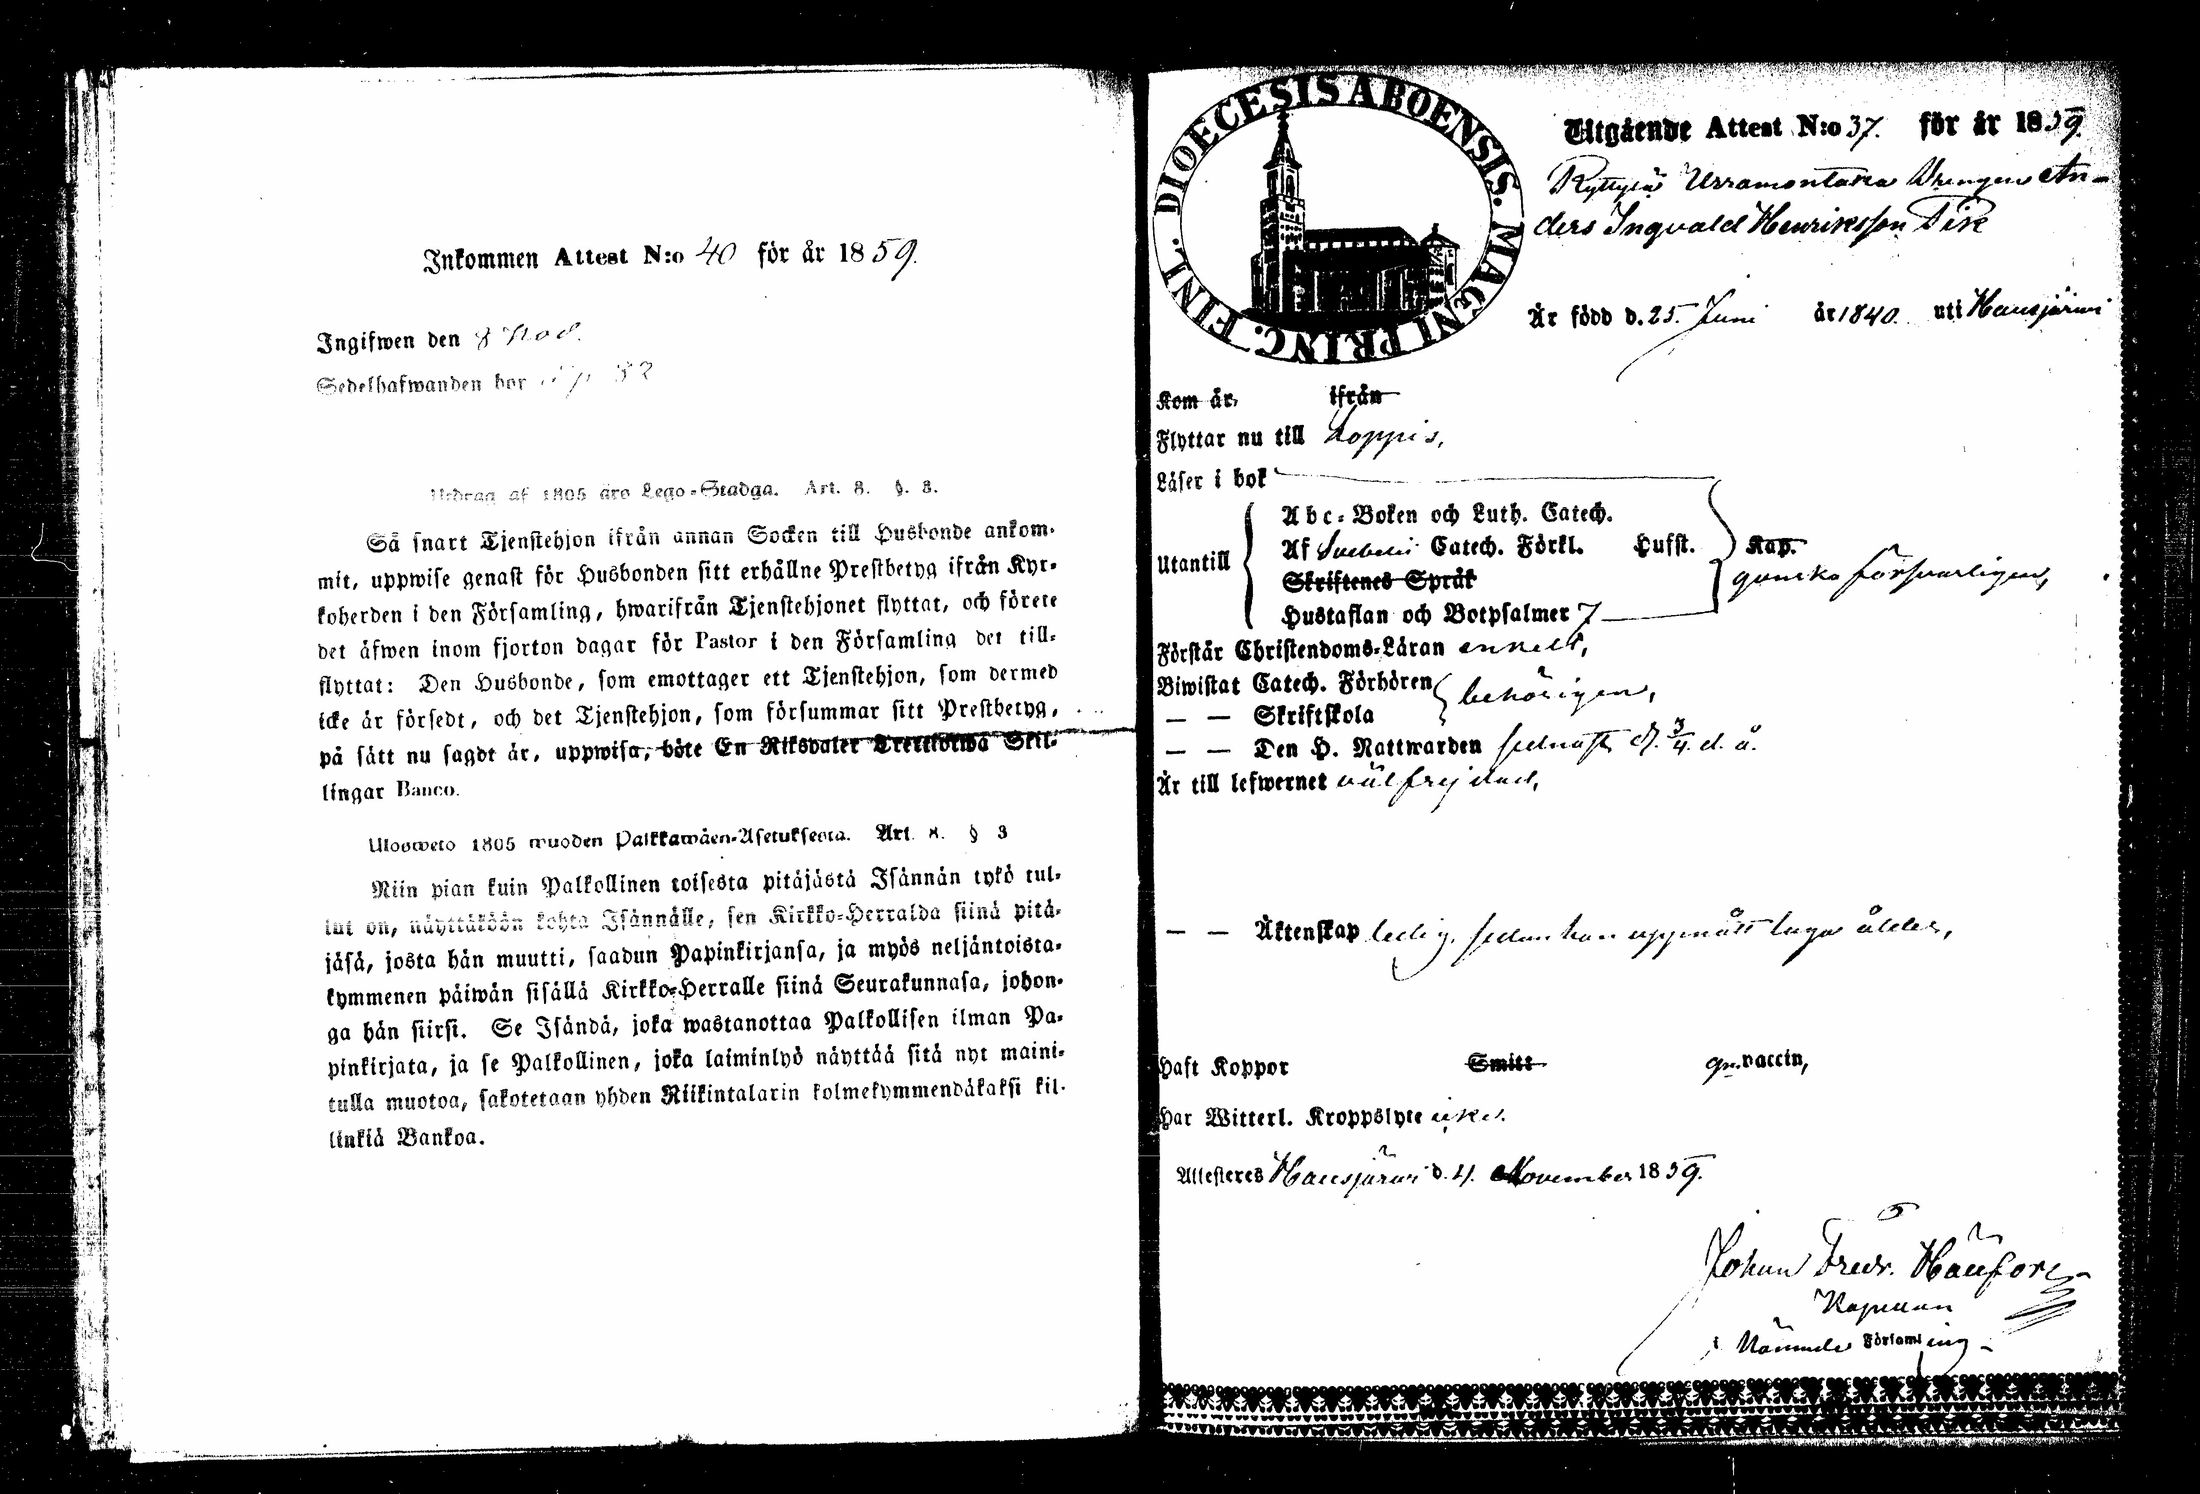 Inkommen Attest N:o 40 för år 1859.
Ingifwen den 8 Nov.
Sedelhafwanden bor
Utdrag af 1805 års Lego-Stadga. Art. 8. §. 3.
Så snart Tjenstehjon ifrån annan Socken till Husbonde ankom-
mit, uppwise genast för Husbonden sitt erhållne Prestbetyg ifrån Kyr-
koherden i den Församling, hwarifrån Tjenstehjonet flyttat, och förete
det äfwen inom fjorton dagar för Pastor i den Församling det till-
flyttat: Den Husbonde, som emottager ett Tjenstehjon, som dermed
icke är försedt, och det Tjenstehjon, som försummar sitt Prestbetyg,
på sätt nu sagdt är, uppwisa, böte En Riksdaler Trettiotwå Skil-
lingar Banco.
Uloswето 1805 wuoden Palkkawäen-Asetuksesta. Art. 8. § 3
Niin pian kuin Palkollinen toisesta pitäjästä Isännän tykö tul-
lut on, näyttäköön kohta Isännälle, sen Kirkko-Herralda siinä pitä-
jäsä, josta hän muutti, saadun Papinkirjansa, ja myös neljäntoista-
kymmenen päiwän sisällä Kirkko-Herralle siinä Seurakunnasa, johon-
ga hän siirsi. Se Isändä, joka wastanottaa Palkollisen ilman Pa-
pinkirjata, ja se Palkollinen, joka laiminlyö näyttää sitä nyt maini-
tulla muotoa, sakotetaan yhden Riikintalarin kolmekymmendäkaksi kil-
linkiä Bankoa.
DIOECESIS ABOENSIS. MAGNI PRINC. FINL.
Utgående Attest N:o 37. för år 1859.
Ryttylä Urramontaka Drengen An-
ders Ingvald Henriksson Fisk
Är född d. 25. Juni år 1840. uti Hausjärwi
Kom år, ifrån
Flyttar nu till Loppis,
Läser i bok
Utantill
Abc-Boken och Luth. Catech.
Af Svebelii Catech. Förkl. Husst. Kap.
Skriftenes Språk
ganska försvarligen,
Hustaflan och Botpsalmer 7
Förstår Christendoms-Läran enkelt,
Biwistat Catech. Förhören
behörigen,
— — Skriftskola
— — Den H. Nattwarden sednast d. 3/4. d. å.
Är till lefwernet välfrejdad,
— — Äktenskap ledig, sedan han uppnått laga ålder,
Haft Koppor Smitt gm. vaccin,
Har Witterl. Kroppslyte icke.
Attesteres Hausjärwi d. 4. November 1859.
Johan Fredr. Häufors
Kapellan
i Nämnde Församling